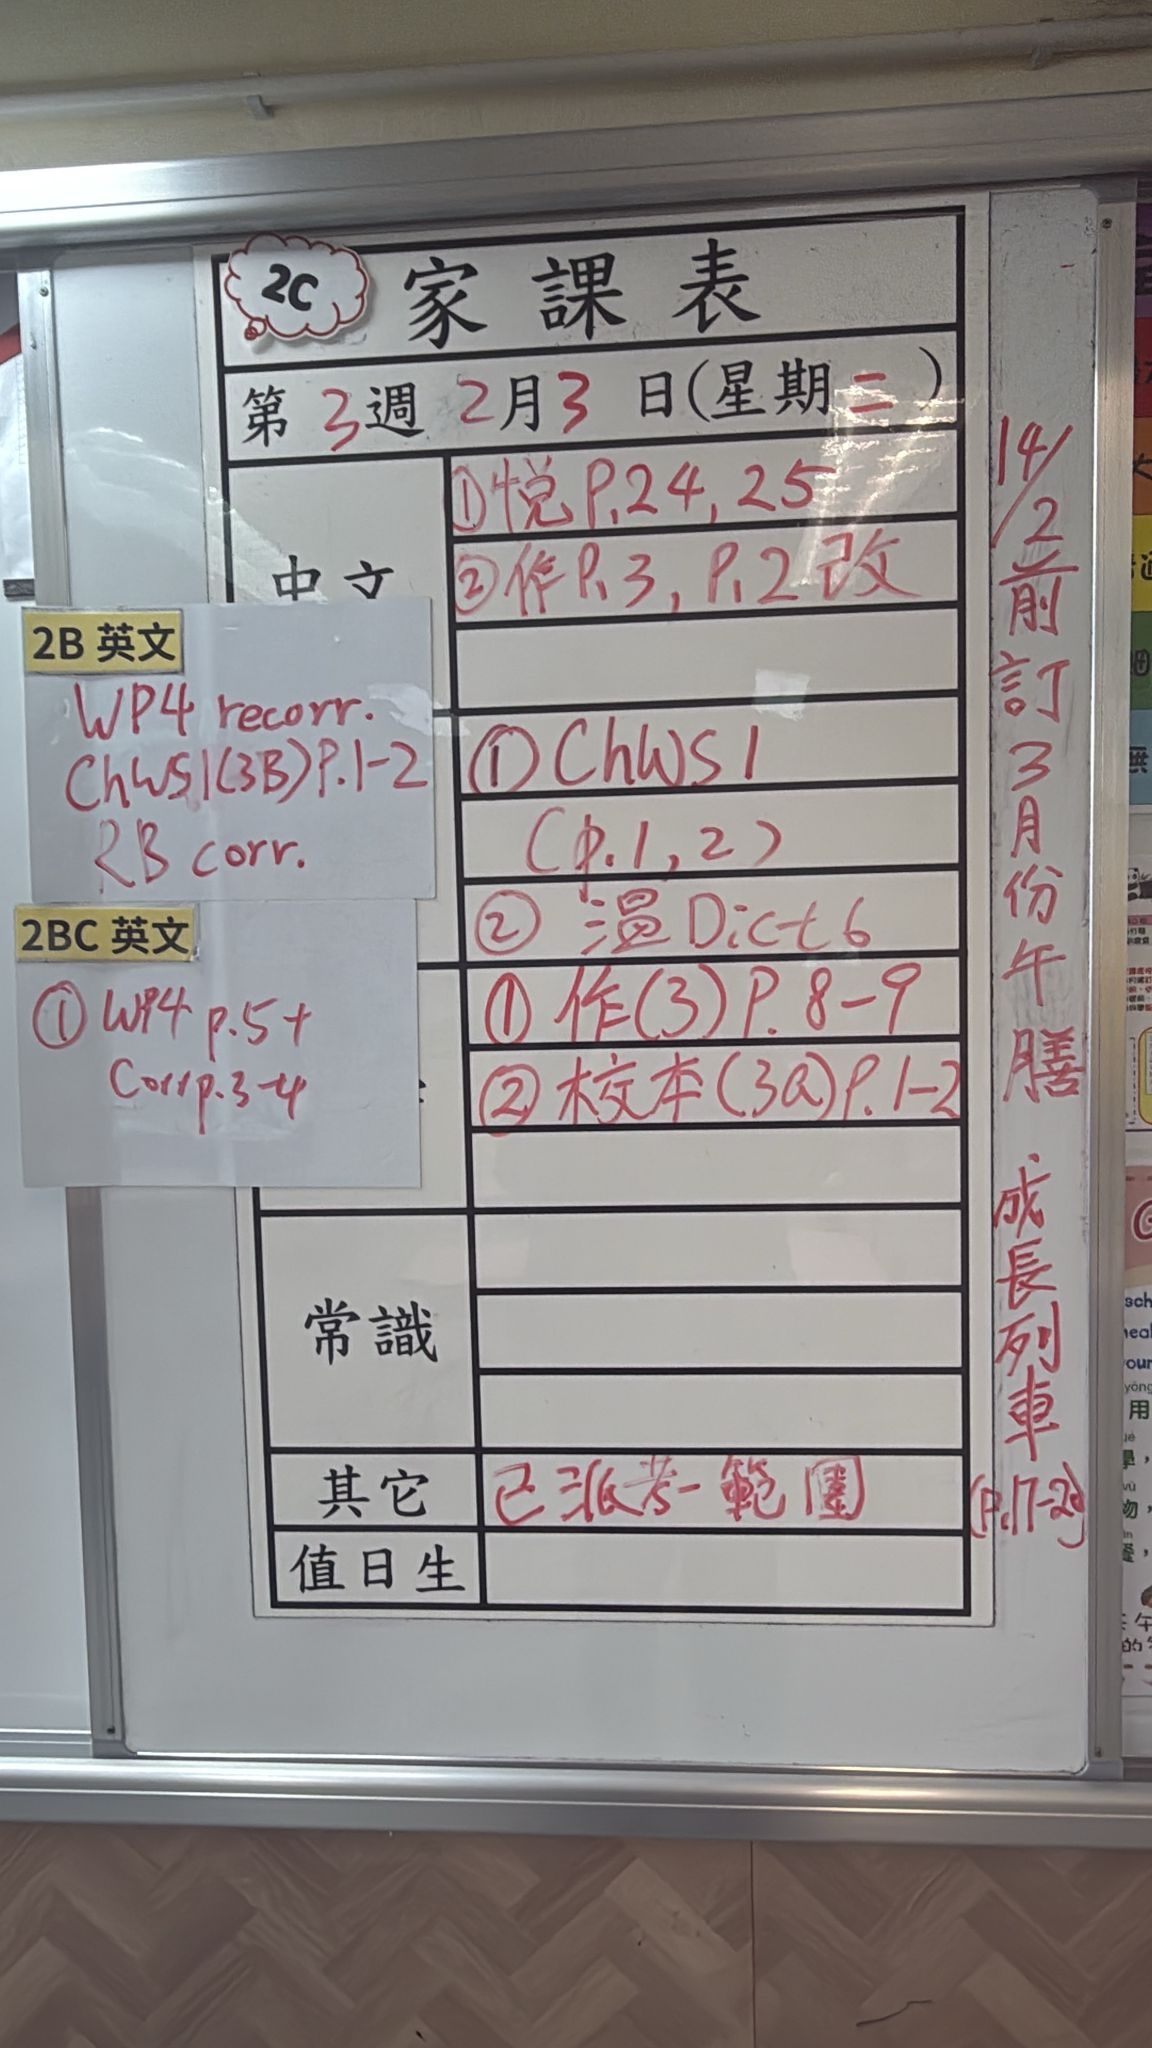 2C 家課表
第 3 週 2 月 3 日 (星期 二 )
中文
①悅 P.24, 25
②作 P.3, P.2 改
2B 英文
WP4 recorr.
ChWS1(3B) P.1-2
RB corr.
① ChWS1
(p.1, 2)
② 溫 Dict 6
2BC 英文
① WP4 p.5+
Corr p.3-4
① 作(3) P.8-9
② 校本(3A) P.1-2
常識
其它
已派考一範圍
值日生
14/2前訂3月份午膳
成長列車